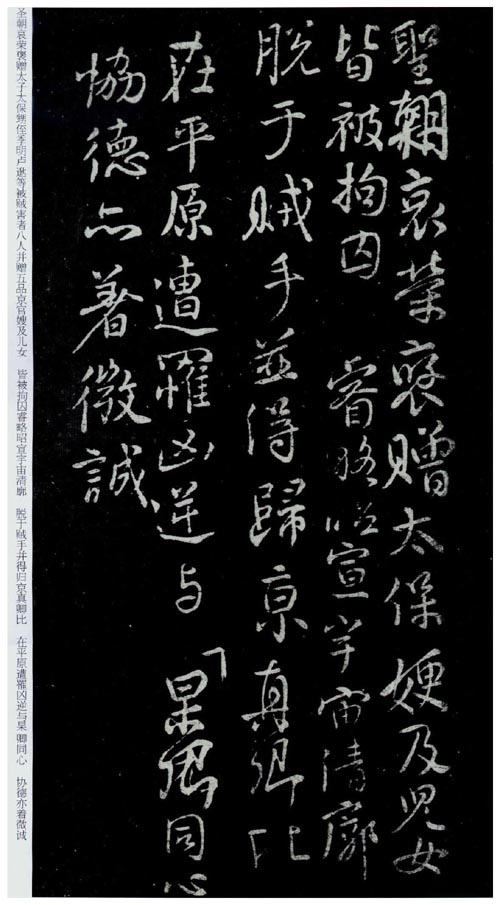 聖朝哀榮襃贈太保嫂及兒女
皆被拘囚 睿略昭宣宇宙清廓
脫于賊手並得歸京真卿比
在平原遭罹凶逆与杲卿同心
協德亦著微誠
圣朝哀荣褒赠太子太保甥侄季明卢逖等被贼害者八人并赠五品京官嫂及儿女 皆被拘囚睿略昭宣宇宙清廓 脱于贼手并得归京真卿比 在平原遭罹凶逆与杲卿同心 协德亦着微诚